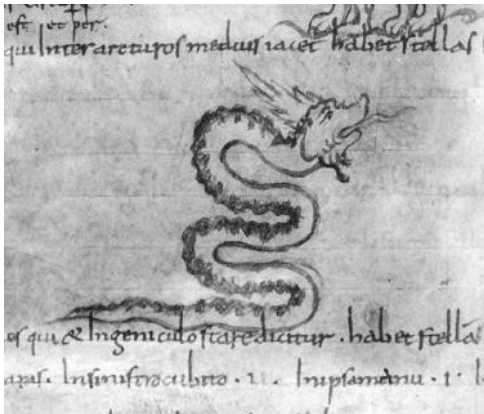 est et per.
qui Inter arcturos medius iacet habet stellas
os qui & Ingeniculo stare dicitur. habet stellas
Insinistro cubito. 11. Inipsa manu. 1.